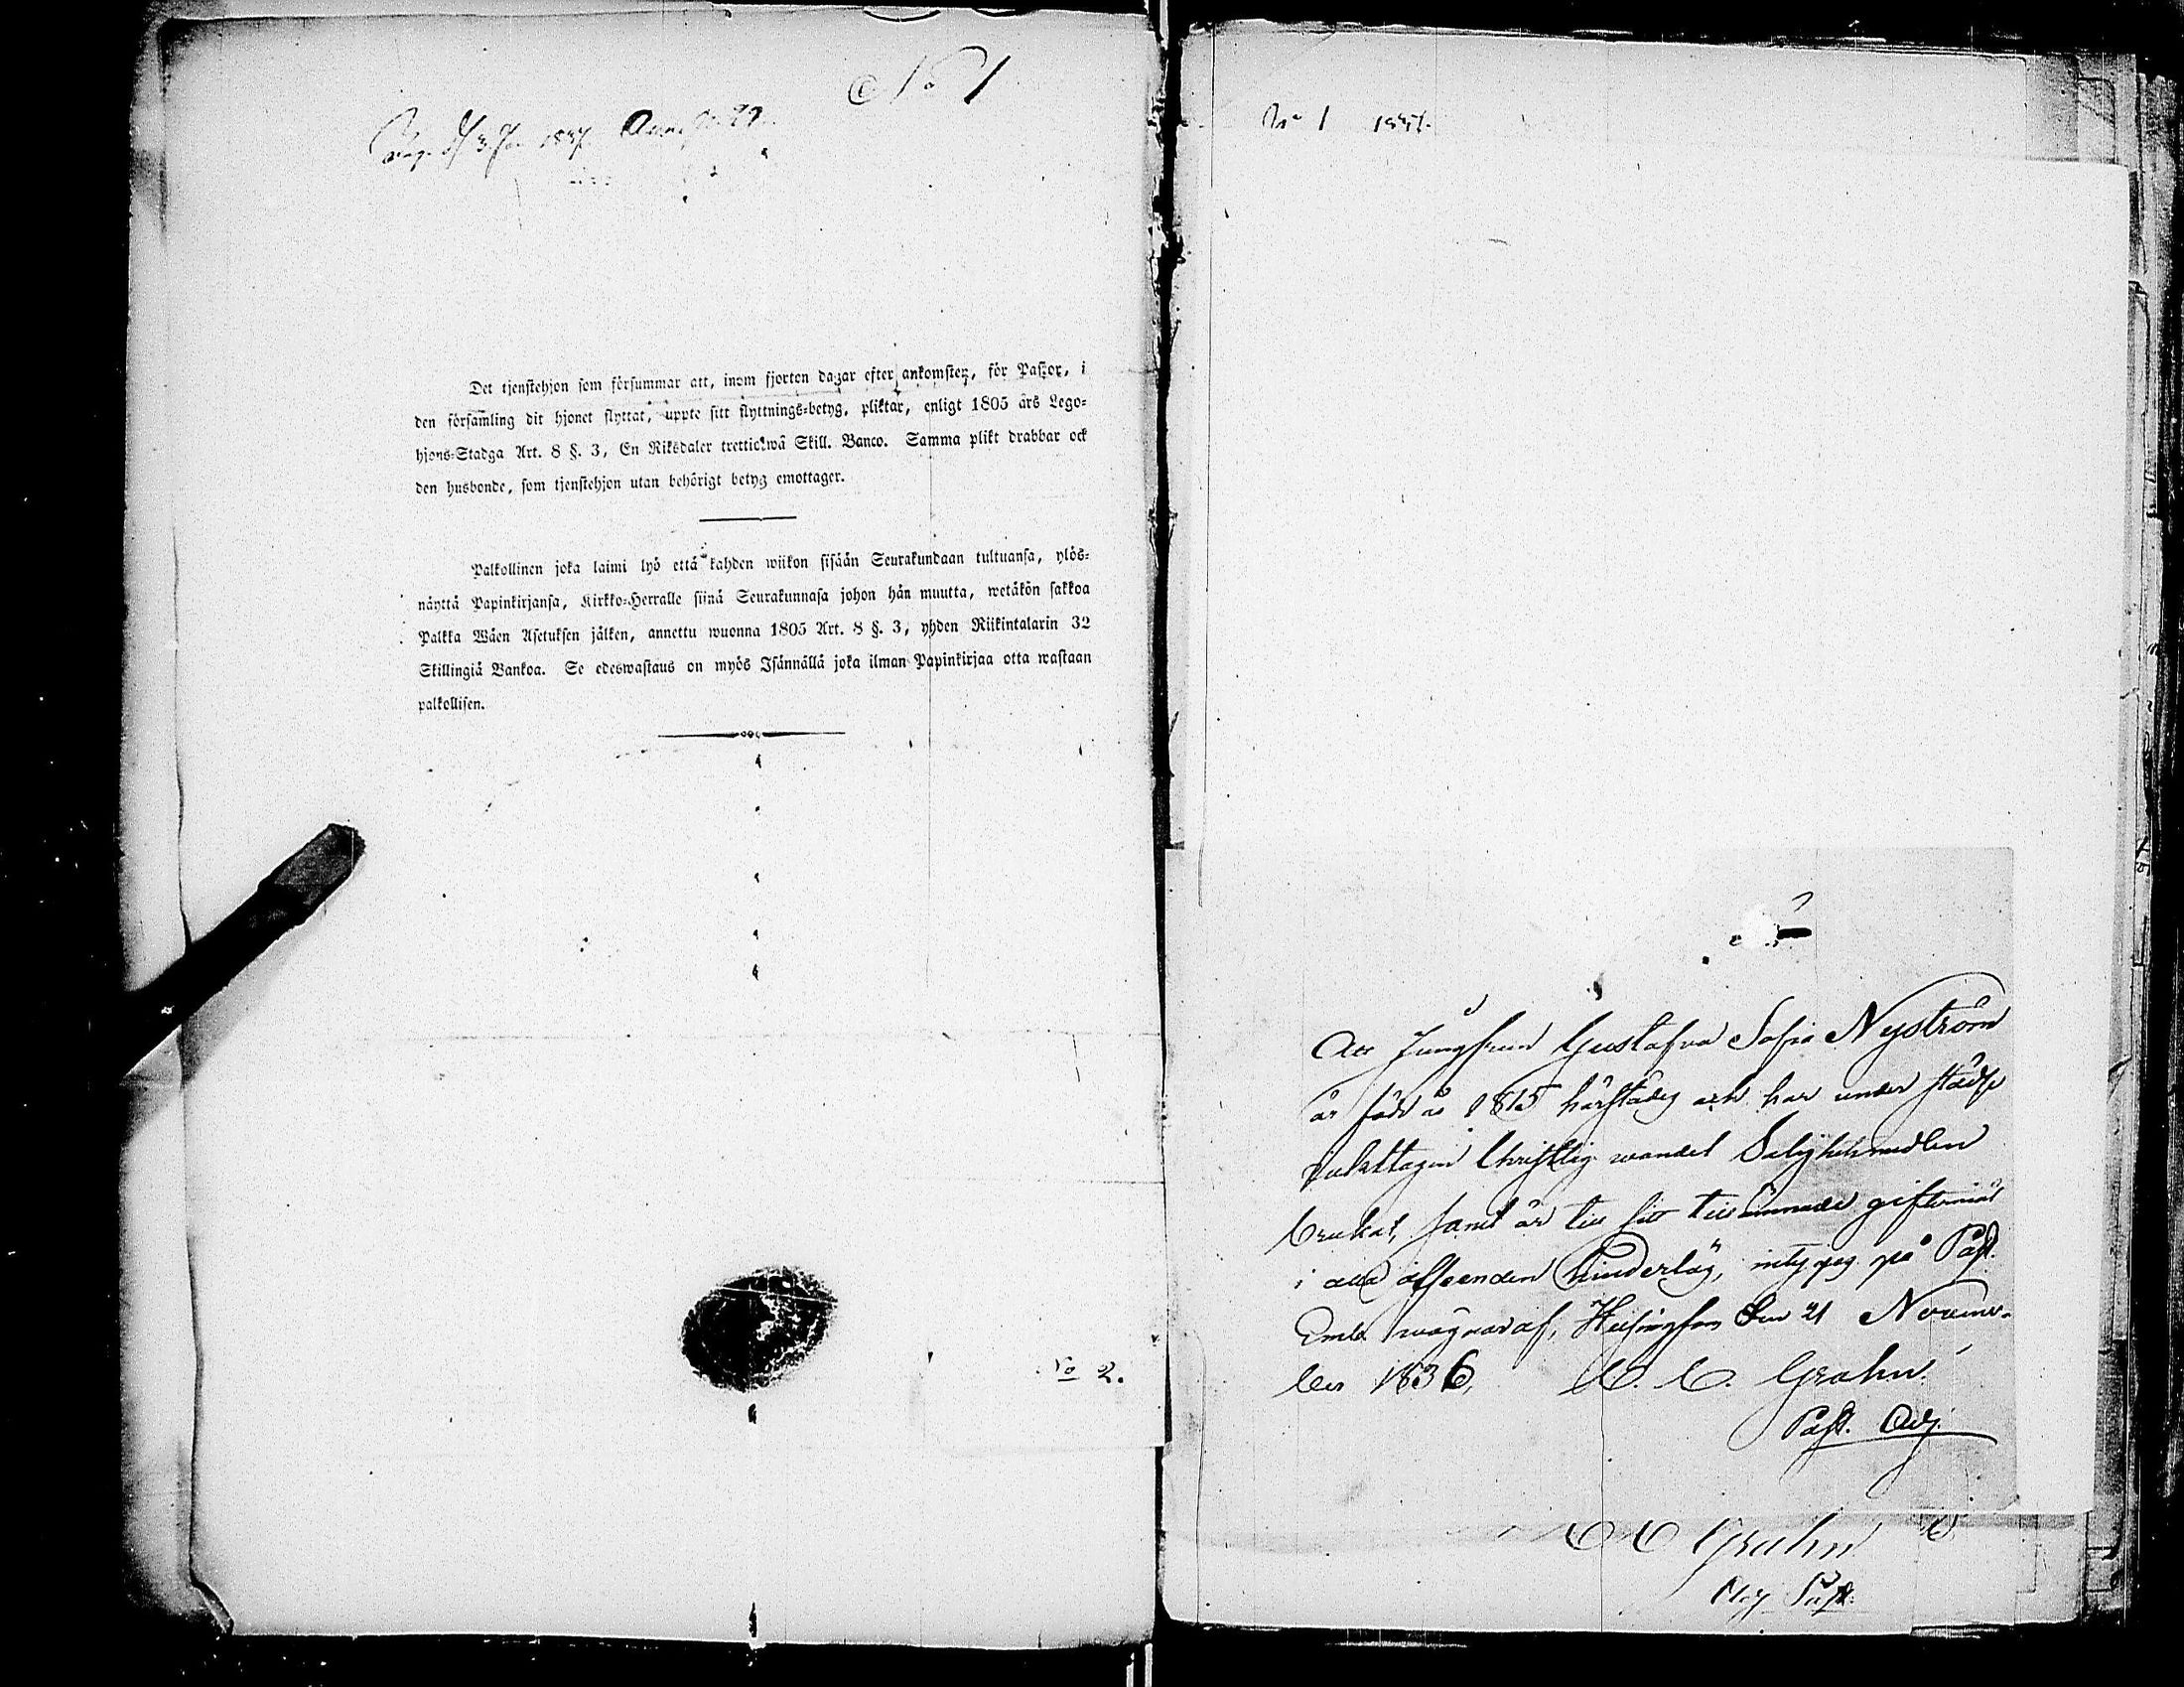 No 1
1837.
Det tjenstehjon som försummar att, inom fjorton dagar efter ankomsten, för Pastor, i
den församling dit hjonet flyttat, uppte sitt flyttnings-betyg, pliktar, enligt 1805 års Lego-
hjons-Stadga Art. 8 §. 3, En Riksdaler trettiotwå Skill. Banco. Samma plikt drabbar ock
den husbonde, som tjenstehjon utan behörigt betyg emottager.
Palkollinen joka laimi lyö että kahden wiikon sisään Seurakundaan tultuansa, ylös-
näyttä Papinkirjansa, Kirkko-Herralle siinä Seurakunnasa johon hän muutta, wetäkön sakkoa
Palkka Wäen Asetuksen jälken, annettu wuonna 1805 Art. 8 §. 3, yhden Riikintalarin 32
Skillingiä Bankoa. Se edeswastaus on myös Isännällä joka ilman Papinkirjaa otta wastaan
palkollisen.
No 2.
No 1
Att Jungfrun Gustafva Sofia Nyström
är född år 1815 härstädes och har under städse
Christlig wandel Salighetsmedlen
brukat, samt är till sitt tillämnade giftermål
i alla afseenden hinderlös, på Past.
Embt. wägnar af, Helsingfors den 21 Novem-
ber 1836, C. C. Grahn.
Past. Adj.
C C Grahn
Adj Past.